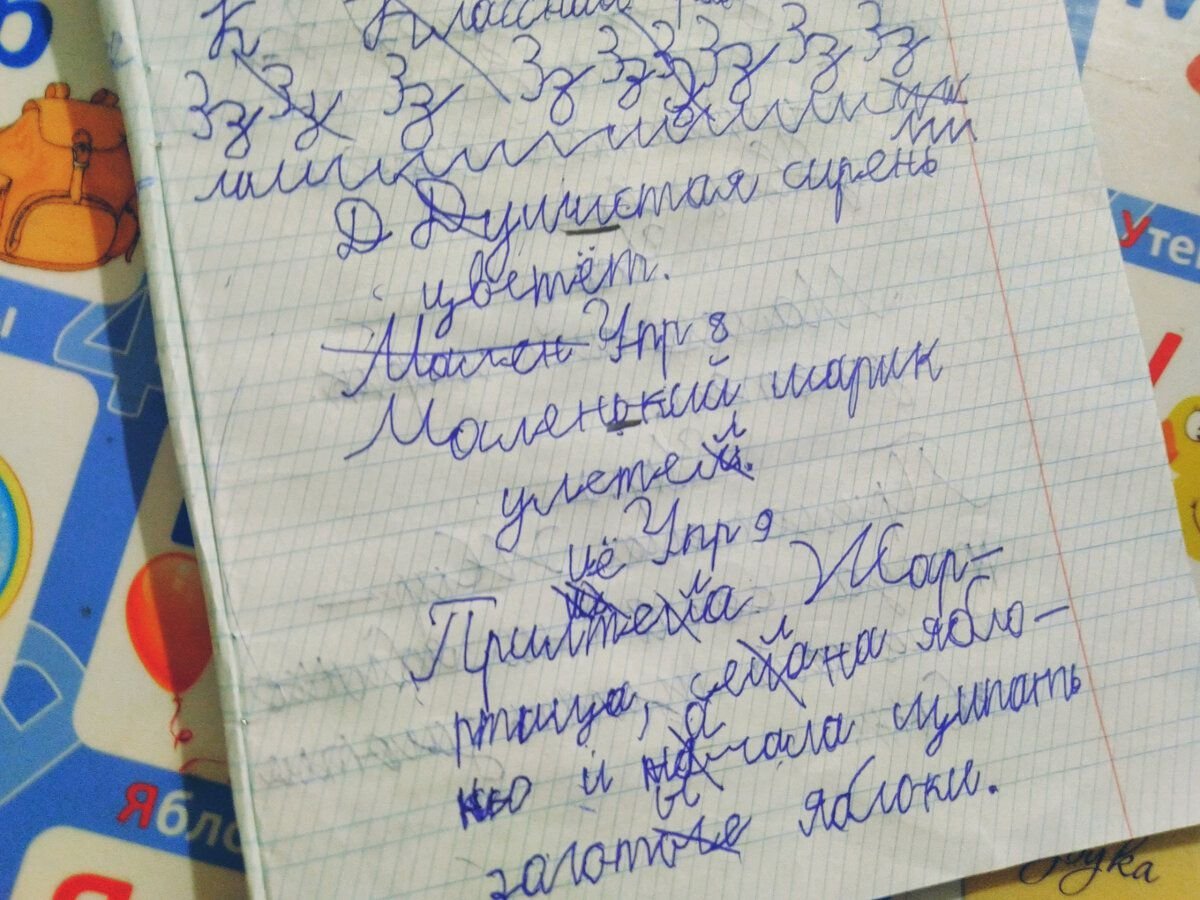 К Классная
Зз Зз Зз Зз Зз Зз Зз Зз Зз
Д Душистая сирень
цветёт.
Мален Упр 8
Маленький шарик
улетел.
Упр 9
Прилтела Жар-
птица, села на ябло-
ню и начала щипать
золотые яблоки.
Утё
Ябло